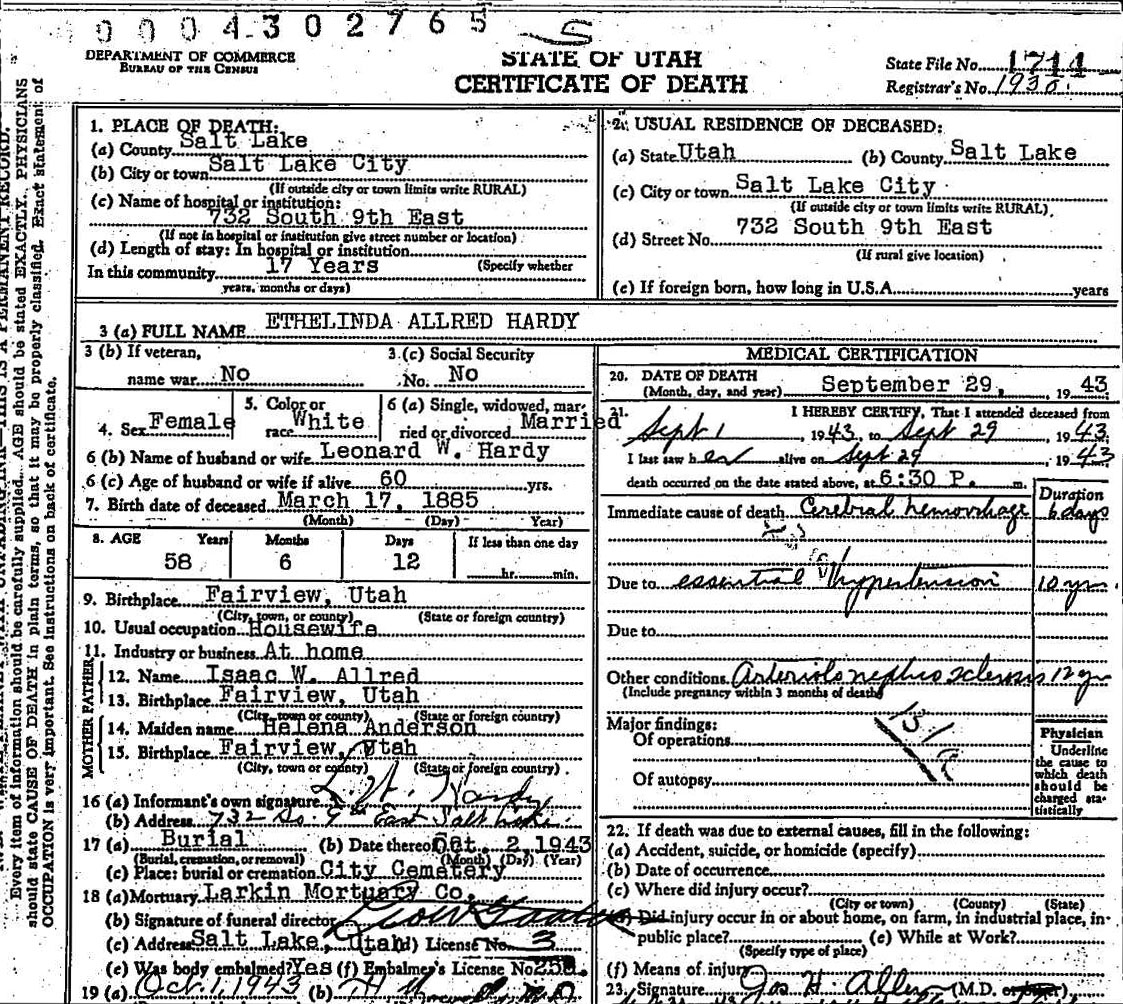 0004302765
DEPARTMENT OF COMMERCE
BUREAU OF THE CENSUS
STATE OF UTAH
CERTIFICATE OF DEATH
State File No. 1714
Registrar's No. 1930
Every item of information should be carefully supplied. AGE should be stated EXACTLY. PHYSICIANS
should state CAUSE OF DEATH in plain terms, so that it may be properly classified. Exact statement of
OCCUPATION is very important. See instructions on back of certificate.
1. PLACE OF DEATH:
(a) County Salt Lake
(b) City or town Salt Lake City
(If outside city or town limits write RURAL)
(c) Name of hospital or institution:
732 South 9th East
(If not in hospital or institution give street number or location)
(d) Length of stay: In hospital or institution
In this community 17 Years (Specify whether
years, months or days)
2. USUAL RESIDENCE OF DECEASED:
(a) State Utah (b) County Salt Lake
(c) City or town Salt Lake City
(If outside city or town limits write RURAL)
(d) Street No. 732 South 9th East
(If rural give location)
(e) If foreign born, how long in U.S.A. years
3 (a) FULL NAME ETHELINDA ALLRED HARDY
3 (b) If veteran, name war No
3 (c) Social Security No. No
4. Sex Female
5. Color or race White
6 (a) Single, widowed, married or divorced Married
6 (b) Name of husband or wife Leonard W. Hardy
6 (c) Age of husband or wife if alive 60 yrs.
7. Birth date of deceased March 17, 1885
(Month) (Day) Year)
8. AGE Years Months Days If less than one day
58 6 12 hr. min.
9. Birthplace Fairview, Utah
(City, town, or county) (State or foreign country)
10. Usual occupation Housewife
11. Industry or business At home
FATHER
12. Name Isaac W. Allred
13. Birthplace Fairview, Utah
(City, town or county) (State or foreign country)
MOTHER
14. Maiden name Helena Anderson
15. Birthplace Fairview, Utah
(City, town or county) (State or foreign country)
16 (a) Informant's own signature L. W. Hardy
(b) Address 732 So. 9th East Salt Lake
17 (a) Burial (b) Date thereof Oct. 2, 1943
(Burial, cremation, or removal) (Month) (Day) (Year)
(c) Place: burial or cremation City Cemetery
18 (a) Mortuary Larkin Mortuary Co.
(b) Signature of funeral director
(c) Address Salt Lake, Utah (d) License No. 3
(e) Was body embalmed? Yes (f) Embalmer's License No
19 (a) Oct. 1, 1943 (b)
MEDICAL CERTIFICATION
20. DATE OF DEATH
(Month, day, and year) September 29, 1943
21. I HEREBY CERTIFY, That I attended deceased from
Sept 1, 1943, to Sept 29, 1943.
I last saw her alive on Sept 29, 1943
death occurred on the date stated above, at 6:30 P. m.
Duration
Immediate cause of death Cerebral hemorrhage 6 days
Due to essential hypertension 10 yrs.
Due to
Other conditions Arteriolo nephro sclerosis 12 yrs
(Include pregnancy within 3 months of death)
Major findings:
Of operations
Of autopsy
Physician
Underline
the cause to
which death
should be
charged sta-
tistically
22. If death was due to external causes, fill in the following:
(a) Accident, suicide, or homicide (specify)
(b) Date of occurrence
(c) Where did injury occur?
(City or town) (County) (State)
(d) Did injury occur in or about home, on farm, in industrial place, in
public place? (e) While at Work?
(Specify type of place)
(f) Means of injury
23. Signature Jas H. Allen (M.D. or other)